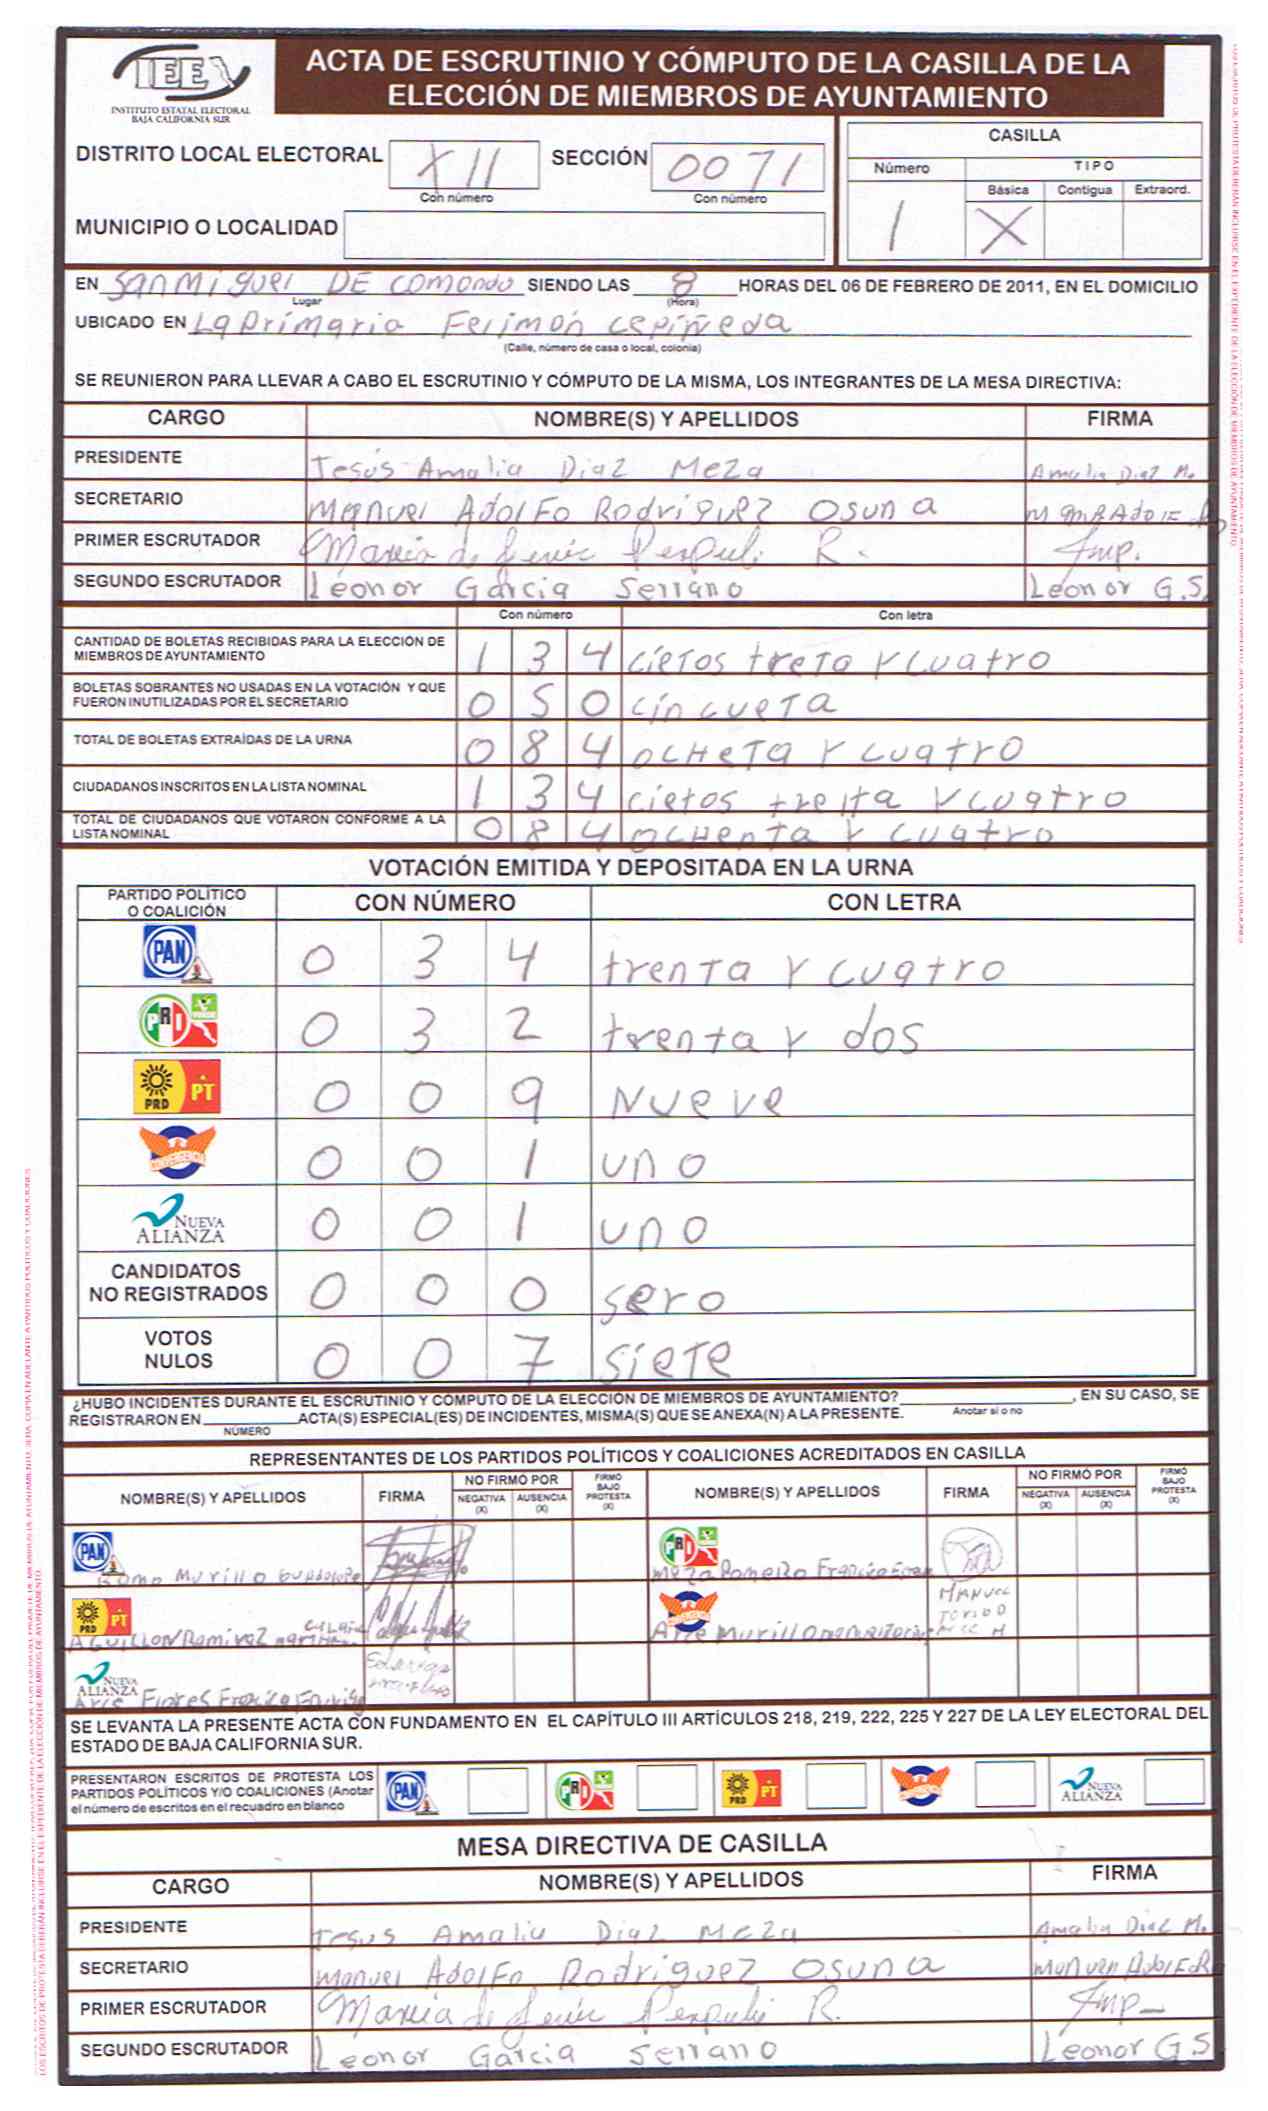 IEE
INSTITUTO ESTATAL ELECTORAL
BAJA CALIFORNIA SUR
ACTA DE ESCRUTINIO Y CÓMPUTO DE LA CASILLA DE LA
ELECCIÓN DE MIEMBROS DE AYUNTAMIENTO
DISTRITO LOCAL ELECTORAL XII SECCIÓN 0071
Con número Con número
MUNICIPIO O LOCALIDAD
CASILLA
Número TIPO
Básica Contigua Extraord.
1 X
EN San Miguel DE Comondu SIENDO LAS 8 HORAS DEL 06 DE FEBRERO DE 2011, EN EL DOMICILIO
Lugar (Hora)
UBICADO EN La primaria
(Calle, número de casa o local, colonia)
SE REUNIERON PARA LLEVAR A CABO EL ESCRUTINIO Y CÓMPUTO DE LA MISMA, LOS INTEGRANTES DE LA MESA DIRECTIVA:
CARGO NOMBRE(S) Y APELLIDOS FIRMA
PRESIDENTE Jesús Amalia Diaz Meza Amalia Diaz M.
SECRETARIO Manuel Adolfo Rodriguez Osuna
PRIMER ESCRUTADOR Maria de Jesús R.
SEGUNDO ESCRUTADOR Leonor Garcia Serrano Leonor G.S.
Con número Con letra
CANTIDAD DE BOLETAS RECIBIDAS PARA LA ELECCIÓN DE
MIEMBROS DE AYUNTAMIENTO 1 3 4 cietos treta y cuatro
BOLETAS SOBRANTES NO USADAS EN LA VOTACIÓN Y QUE
FUERON INUTILIZADAS POR EL SECRETARIO 0 5 0 cincueta
TOTAL DE BOLETAS EXTRAÍDAS DE LA URNA 0 8 4 ocheta y cuatro
CIUDADANOS INSCRITOS EN LA LISTA NOMINAL 1 3 4 cietos treita y cuatro
TOTAL DE CIUDADANOS QUE VOTARON CONFORME A LA
LISTA NOMINAL 0 8 4 ochenta y cuatro
VOTACIÓN EMITIDA Y DEPOSITADA EN LA URNA
PARTIDO POLÍTICO
O COALICIÓN CON NÚMERO CON LETRA
PAN 0 3 4 trenta y cuatro
PRI VERDE 0 3 2 trenta y dos
PRD PT 0 0 9 Nueve
0 0 1 uno
NUEVA ALIANZA 0 0 1 uno
CANDIDATOS
NO REGISTRADOS 0 0 0 sero
VOTOS
NULOS 0 0 7 siete
¿HUBO INCIDENTES DURANTE EL ESCRUTINIO Y CÓMPUTO DE LA ELECCIÓN DE MIEMBROS DE AYUNTAMIENTO? , EN SU CASO, SE
REGISTRARON EN ACTA(S) ESPECIAL(ES) DE INCIDENTES, MISMA(S) QUE SE ANEXA(N) A LA PRESENTE. Anotar sí o no
NÚMERO
REPRESENTANTES DE LOS PARTIDOS POLÍTICOS Y COALICIONES ACREDITADOS EN CASILLA
NOMBRE(S) Y APELLIDOS FIRMA NO FIRMÓ POR NEGATIVA (X) AUSENCIA (X) FIRMÓ BAJO PROTESTA (X) NOMBRE(S) Y APELLIDOS FIRMA NO FIRMÓ POR NEGATIVA (X) AUSENCIA (X) FIRMÓ BAJO PROTESTA (X)
PAN Murillo PRI Meza Romero
PRD PT Aguillon Ramirez Arce Murillo Manuel
NUEVA ALIANZA Arce Flores
SE LEVANTA LA PRESENTE ACTA CON FUNDAMENTO EN EL CAPÍTULO III ARTÍCULOS 218, 219, 222, 225 Y 227 DE LA LEY ELECTORAL DEL
ESTADO DE BAJA CALIFORNIA SUR.
PRESENTARON ESCRITOS DE PROTESTA LOS
PARTIDOS POLÍTICOS Y/O COALICIONES (Anotar
el número de escritos en el recuadro en blanco
PAN PRI PRD PT NUEVA ALIANZA
MESA DIRECTIVA DE CASILLA
CARGO NOMBRE(S) Y APELLIDOS FIRMA
PRESIDENTE Jesus Amalia Diaz Meza Amalia Diaz M.
SECRETARIO Manuel Adolfo Rodriguez Osuna
PRIMER ESCRUTADOR Maria de Jesús R.
SEGUNDO ESCRUTADOR Leonor Garcia Serrano Leonor G.S.